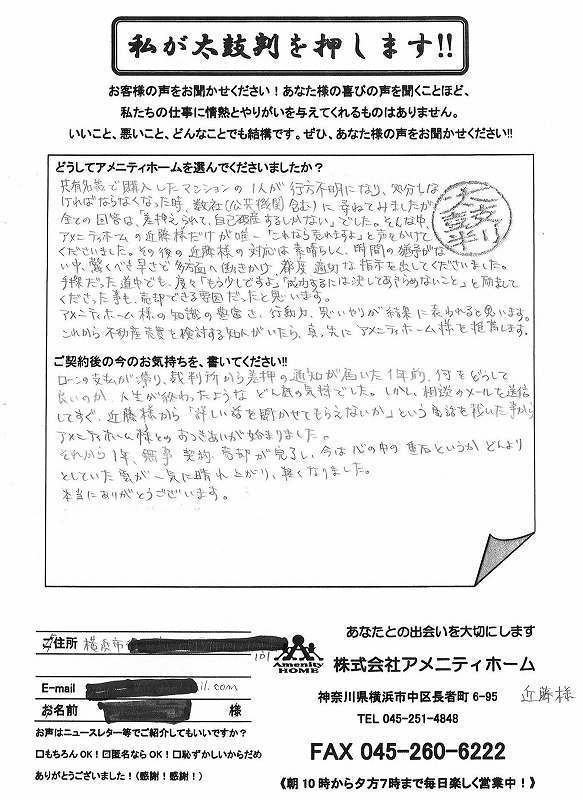 私が太鼓判を押します!!
お客様の声をお聞かせください！あなた様の喜びの声を聞くことほど、
私たちの仕事に情熱とやりがいを与えてくれるものはありません。
いいこと、悪いこと、どんなことでも結構です。ぜひ、あなた様の声をお聞かせください!!
どうしてアメニティホームを選んでくださいましたか？
共有名義で購入したマンションの1人が行方不明になり、処分しな
ければならなくなった時、数社(公共機関含む)に尋ねてみましたが
全ての回答は、差押えられて、自己破産するしかない」でした。そんな中、
アメニティホームの近藤様だけが唯一「これなら売れますよ」と声をかけて
くださいました。その後の近藤様の対応は素晴らしく、時間の猶予がな
い中、驚くべき早さで多方面へ働きかけ、都度適切な指示を出してくださいました。
手探だった道中でも、度々「もう少しですよ」「成功するには決してあきらめないこと」と励まして
くださった事も、売却できる要因だったと思います。
アメニティホーム様の知識の豊富さ、行動力、思いやりが結果に表われると思います。
これから不動産売買を検討する知人がいたら、真っ先にアメニティホーム様を推薦します。
太鼓判
ご契約後の今のお気持ちを、書いてください!!
ローンの支払が滞り、裁判所から差押の通知が届いた1年前、何をどうして
良いのか、人生が終わったような どん底の気持でした。しかし、相談のメールを送信
してすぐ、近藤様から「詳しい話を聞かせてもらえないか」という電話を頂いた事から
アメニティホーム様とのおつきあいが始まりました。
それから1年、無事 契約、売却が完了し、今は心の中の重石というか どんより
としていた雲が一気に晴れ上がり、軽くなりました。
本当にありがとうございます。
ご住所 横浜市
101
E-mail il.com
お名前 様
お声はニュースレター等でご紹介してもいいですか？
□もちろんOK！☑匿名ならOK！□恥ずかしいからだめ
ありがとうございました！(感謝！感謝！)
あなたとの出会いを大切にします
Amenity
HOME
株式会社アメニティホーム
神奈川県横浜市中区長者町6-95 近藤様
TEL 045-251-4848
FAX 045-260-6222
《朝10時から夕方7時まで毎日楽しく営業中！》